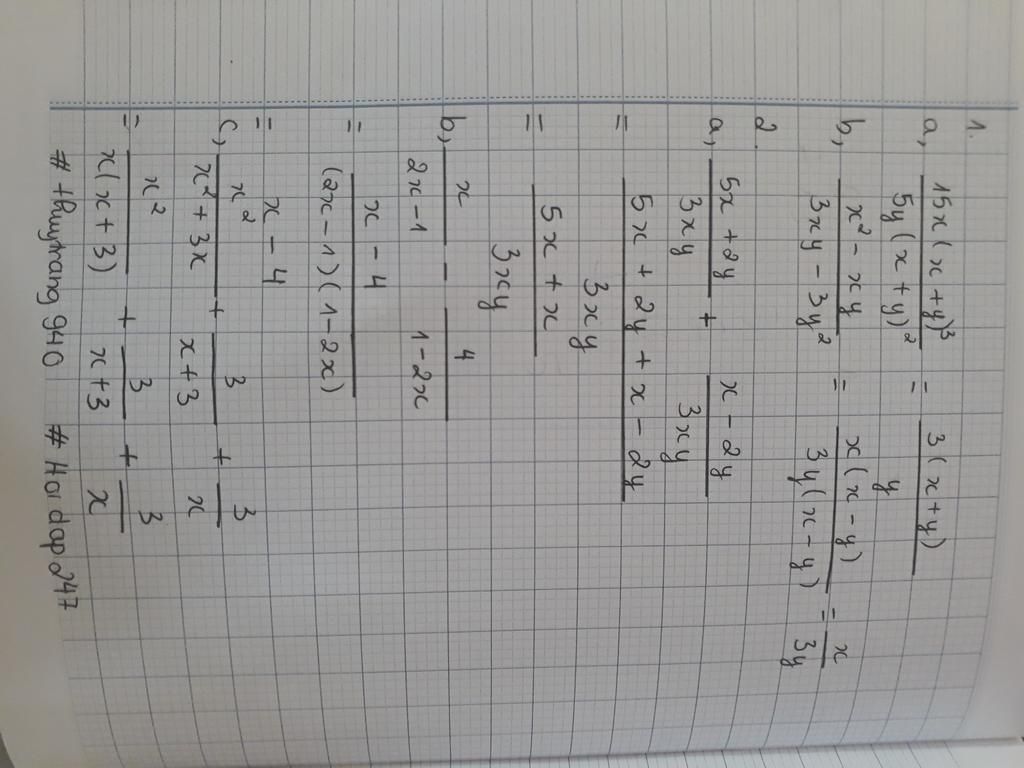 1.
a, 15x(x+y)³ / 5y(x+y)² = 3(x+y) / y
b, x² - xy / 3xy - 3y² = x(x-y) / 3y(x-y) = x / 3y
2.
a, 5x+2y / 3xy + x-2y / 3xy
= 5x + 2y + x - 2y / 3xy
= 5x + x / 3xy
b, x / 2x-1 - 4 / 1-2x
= x - 4 / (2x-1)(1-2x)
= x - 4
c, x² / x²+3x + 3 / x+3 + 3 / x
= x² / x(x+3) + 3 / x+3 + 3 / x
# thuytrang 9410 # Hoi dap 247